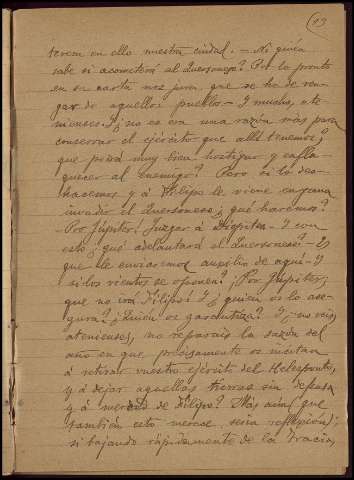 13
teresa en ello nuestra ciudad. — Ni quién
sabe si acometerá al Quersoneso? Por lo pronto
en su carta nos jura que se ha de ven-
gar de aquellos pueblos — Y mucho, ate-
nienses. Y ¿no es esa una razón más para
conservar el ejército que allí tenemos,
que podrá muy bien hostigar y enfla-
quecer al enemigo? Pero si lo des-
hacemos y á Filipo le viene en gana
invadir el Quersoneso ¿qué haremos?
¡Por Júpiter! Juzgar á Diopites — Y con
esto ¿qué adelantará el Quersoneso? — Y
que le enviaremos auxilio de aquí — Y
si los vientos se oponen? ¡Por Júpiter,
que no irá Filipo! Y ¿quién os lo ase-
gura? ¿Quién os garantiza? Y ¿no veis,
atenienses, no reparais la sazón del
año en que precisamente os incitan
á retirar vuestro ejército del Helesponto,
y á dejar aquellas tierras sin defensa
y á merced de Filipo? Más aún (que
también esto merece seria reflexión);
si bajando rápidamente de la Tracia,